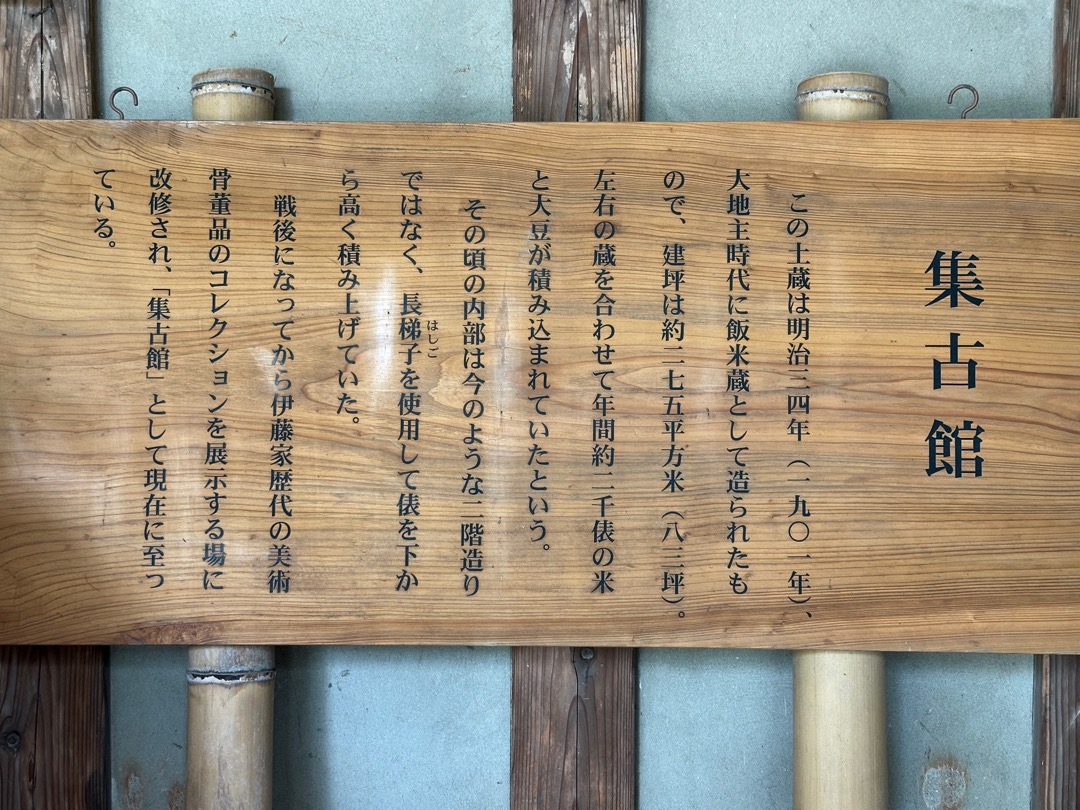 集古館
この土蔵は明治三四年（一九〇一年）、
大地主時代に飯米蔵として造られたも
ので、建坪は約二七五平方米（八三坪）。
左右の蔵を合わせて年間約二千俵の米
と大豆が積み込まれていたという。
その頃の内部は今のような二階造り
ではなく、長梯子を使用して俵を下か
はしご
ら高く積み上げていた。
戦後になってから伊藤家歴代の美術
骨董品のコレクションを展示する場に
改修され、「集古館」として現在に至っ
ている。